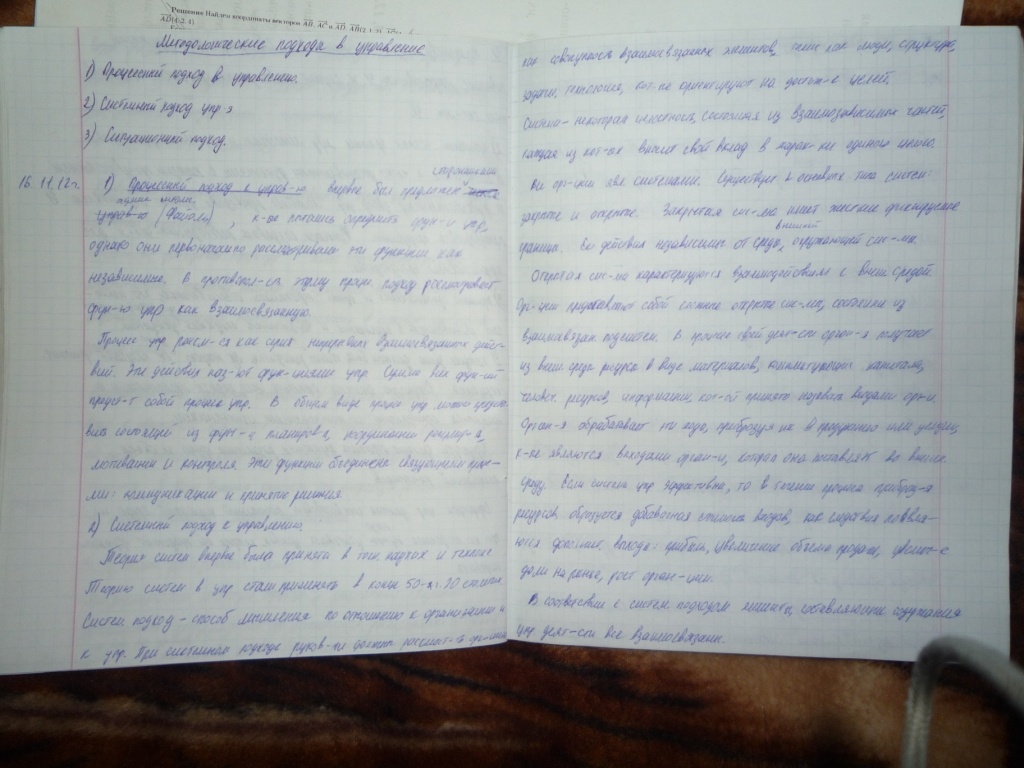 Решение Найдем координаты векторов AB, AC и AD. AB(2
AD(4;2;4)
Методологические подхода в управление
1) Процессный подход в управлению.
2) Системный подход упр-я
3) Ситуационный подход.
сторонниками
16.11.12г. 1) Процессный подход к управ-ю впервые был предложен
школы
управ-ю (Файоль), к-ые пытались определить функ-и упр,
однако они первоначально рассматривали эти функции как
независимые. В противопол-сть этому проц. подход рассматривает
функ-ю упр как взаимосвязанную.
Процесс упр рассм-ся как серия непрерывных взаимосвязанных дейс-
вий. Эти действия наз-ют функ-циями упр. Сумма всех функ-ий
предст-т собой процесс упр. В общем виде процесс упр можно
состоящей из функ-и планиров-я,
мотивации и контроля. Эти функции объединены связующими проц-
ми: коммуникации и принятие решения
2) Системный подход к управлению.
Теория систем впервые была принята в точн. науках и технике
Теорию систем в упр стали применять в конце 50-х г. 20 столетия
Систем подход - способ мышления по отношению к организации и
к упр. При системном подходе руков-ли должны рассмат-ть
как совокупность взаимосвязанных элементов, такие как люди, структура,
задачи, технология, кот-ые ориентируют на достиж-е целей.
Система - некоторая целостность, состоящая из взаимозависимых частей,
каждая из кот-ых вносит свой вклад в харак-ки единого целого.
Все орг-ции явл системами. Существует 2 основных типа систем:
закрытые и открытые. Закрытая сис-ма имеет жесткие фиксируемые
внешней
границы. Ее действия независимы от среды, окружающей сис-ма.
Открытая сис-ма характеризуется взаимодействием с внеш средой.
Орг-ции представляют собой сложные открытые сис-мы, состоящие из
взаимосвязан подсистем. В процессе своей деят-сти орган-я получает
из внеш среды ресурсы в виде материалов, капитала,
человеч ресурсов, информации, кот-ой принято называть входами орг-и.
Орган-я обрабатывает эти входы, преобразуя их в продукцию или услуги,
к-ые являются выходами орган-и, которые она поставляет во внешн
среду. Если система упр эффективна, то в течение процесса преобраз-я
ресурсов образуется добавочная стоимость входов, как следствие появля-
ются дополнит. выходы: прибыль, увеличение объема продаж, увелич-е
доли на рынке, рост орган-ции.
В соответствии с систем. подходом элементы, составляющие содержания
упр. деят-сти все взаимосвязаны.